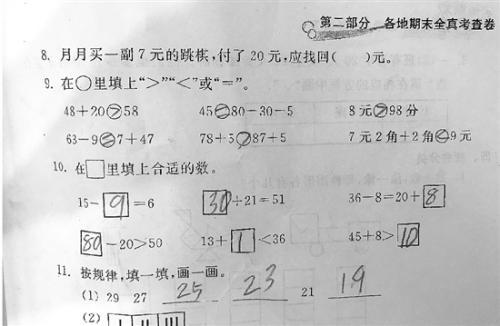 第二部分 各地期末全真考查卷
8. 月月买一副7元的跳棋,付了20元,应找回( )元。
9. 在○里填上“>”“<”或“=”。
48+20○58 45○80-30-5 8元○98分
63-9○7+47 78+5○87+5 7元2角+2角○9元
10. 在□里填上合适的数。
15-9=6 30+21=51 36-8=20+8
80-20>50 13+1<36 45+8>10
11. 按规律,填一填,画一画。
(1) 29 27 25 23 21 19
(2)